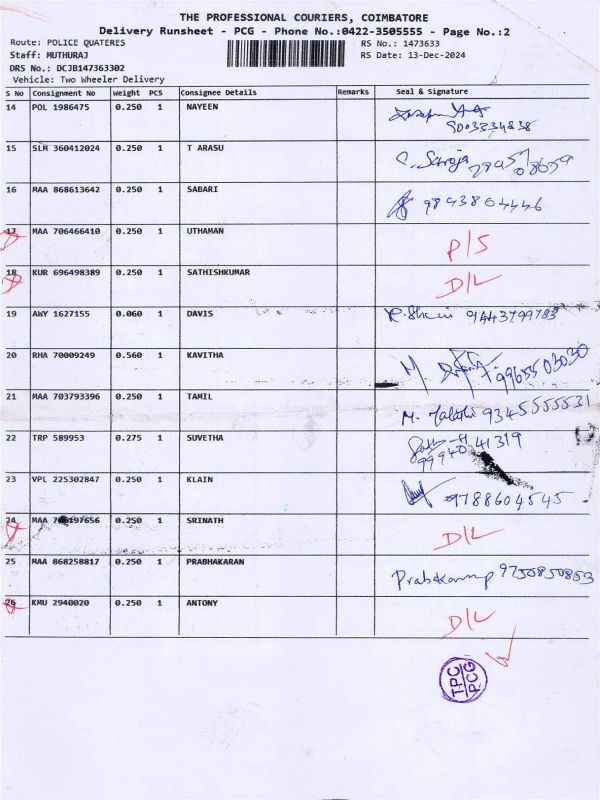 THE PROFESSIONAL COURIERS, COIMBATORE
Delivery Runsheet - PCG - Phone No.:0422-3505555 - Page No.:2
Route: POLICE QUATERES RS No.: 1473633
Staff: MUTHURAJ RS Date: 13-Dec-2024
DRS No.: DCJB147363302
Vehicle: Two Wheeler Delivery
S No Consignment No Weight PCS Consignee Details Remarks Seal & Signature
14 POL 1986475 0.250 1 NAYEEN
9003334838
15 SLM 360412024 0.250 1 T ARASU C. Saroja
16 MAA 868613642 0.250 1 SABARI 9843864446
17 MAA 706466410 0.250 1 UTHAMAN P/S
18 KUR 696498389 0.250 1 SATHISHKUMAR D/L
19 AWY 1627155 0.060 1 DAVIS 9443799783
20 RHA 70009249 0.560 1 KAVITHA M. 9965503030
21 MAA 703793396 0.250 1 TAMIL M. Malathi 9345555531
22 TRP 589953 0.275 1 SUVETHA
9994041319
23 VPL 225302847 0.250 1 KLAIN 9788604545
24 MAA 1 SRINATH D/L
0.250
25 MAA 868258817 0.250 1 PRABHAKARAN 9750850853
26 KMU 2940020 0.250 1 ANTONY D/L
TPC
PCG